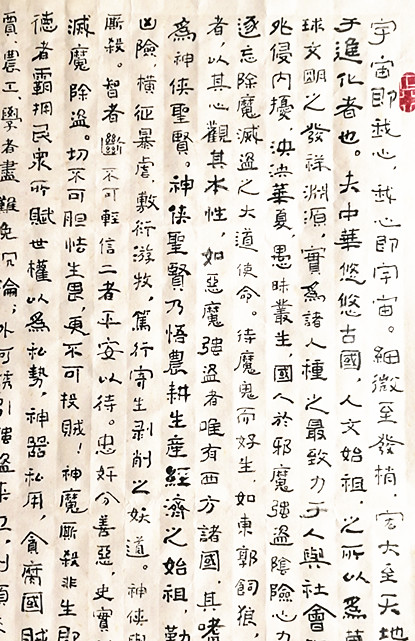 宇宙即我心,我心即宇宙。細微至發梢,宏大至天地
于進化者也。夫中華悠悠古國,人文始祖,之所以爲
球文明之發祥淵源,實爲諸人種之最致力于人與社會
外侵内擾,泱泱華夏,愚昧叢生,國人於邪魔強盜陰險心力
逐忘除魔滅盜之大道使命。待魔鬼而好生,如東郭飼狼,
者,以其心觀其本性,如惡魔強盜者唯有西方諸國,其嗜
爲神俠聖賢。神俠聖賢乃悟農耕生産經濟之始祖,勤
凶險,橫征暴虐,敷衍游牧,篤行寄生剥削之妖道。神俠與
厮殺。智者斷不可輕信二者平安以待。忠奸分善惡,史實
滅魔除盜。切不可胆怯生畏,更不可投賊!神魔厮殺非生即
德者霸拥民衆所賦世權以爲私勢,神器私用,貪腐國賊
賈、農、工、學者盡難免沉淪,外可誘引強盜来